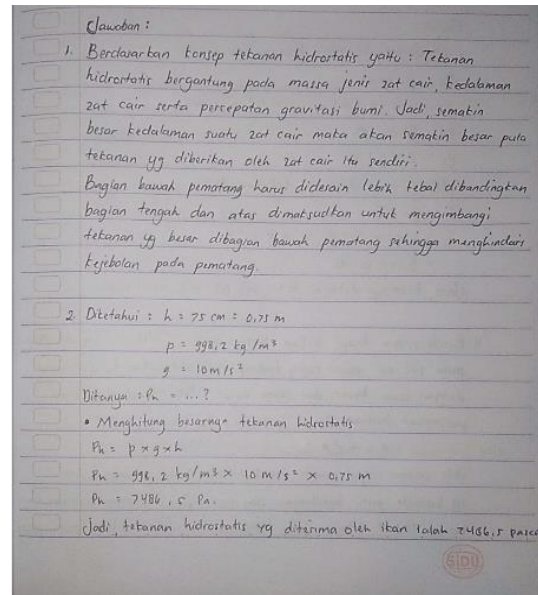 Jawaban :
1. Berdasarkan konsep tekanan hidrostatis yaitu : Tekanan
hidrostatis bergantung pada massa jenis zat cair, kedalaman
zat cair serta percepatan gravitasi bumi. Jadi, semakin
besar kedalaman suatu zat cair maka akan semakin besar pula
tekanan yg diberikan oleh zat cair itu sendiri.
Bagian bawah pematang harus didesain lebih tebal dibandingkan
bagian tengah dan atas dimaksudkan untuk mengimbangi
tekanan yg besar dibagian bawah pematang sehingga menghindari
kejebolan pada pematang.
2. Diketahui : h = 75 cm = 0,75 m
ρ = 998,2 kg/m³
g = 10 m/s²
Ditanya : Ph = ... ?
• Menghitung besarnya tekanan hidrostatis
Ph = ρ x g x h
Ph = 998,2 kg/m3 x 10 m/s² x 0,75 m
Ph = 7486,5 Pa.
Jadi, tekanan hidrostatis yg diterima oleh ikan ialah 7486,5 pasca
SIDU